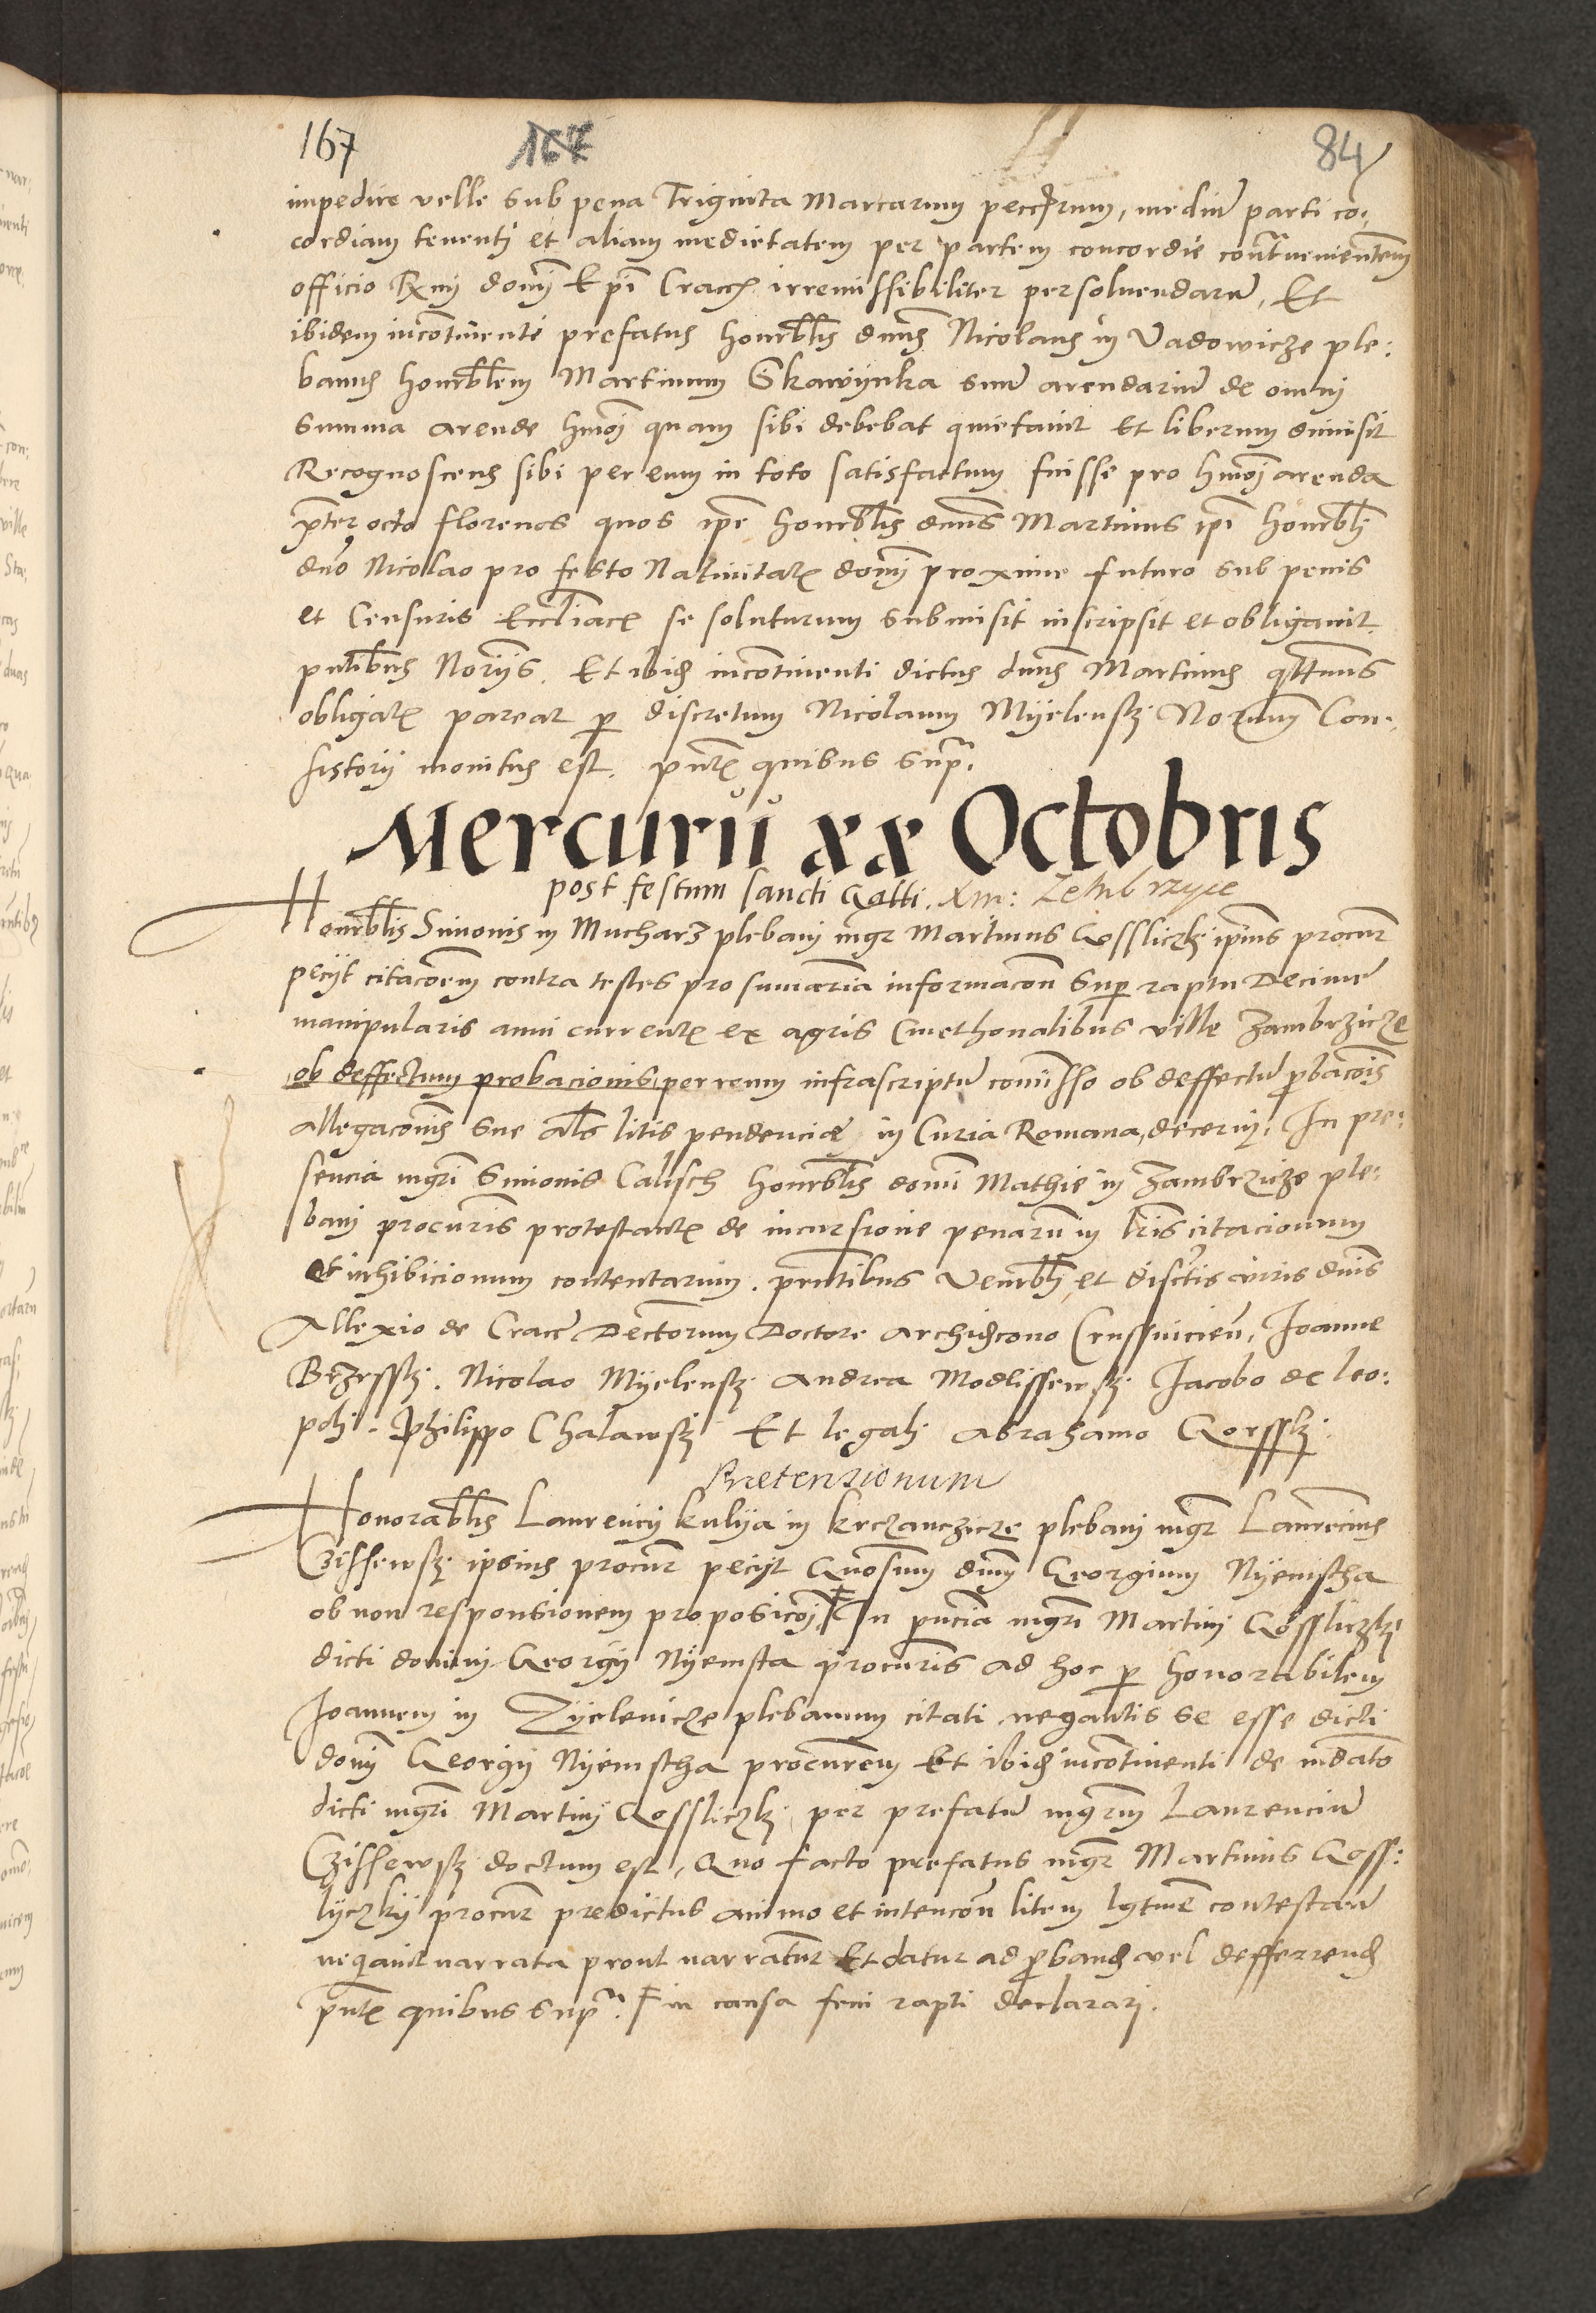 167 167 84
impedire velle sub pena Triginta Marcarum peccărum, mediũ parti co-
cordiam tenentj et aliam medietatem per partem concordie contuenientem
officio Rmj domj Epi Cracс irremissibiliter persoluendarũ, Et
ibidem incontinenti prefatus honrblis dnus Nicolaus in Vadowicze ple:
banus honrblem Martinum Skawynka suũ arendariũ de omnj
summa arende hmoj quam sibi debebat quietauit Et liberum dimisit
Recognoscens sibi per eum in toto satisfactum fuisse pro hmoj arenda
pter octo florenos quos ipe honrblis dnus Martinus ipi honrblj
dno Nicolao pro festo Natiuitatis domj proxime futuro sub penis
et Censuris Eccliacis se soluturum submisit inscripsit et obligauit
pntibus Norijs. Et ibid incontinenti dictus dnus Martinus qttnus
obligatis pareat p discretum Nicolaum Myelensky Norium Con-
sistorij monitus est. pntes quibus supra.
Mercurii xx Octobris
post festum sancti Galli. Zembrzyce
Honrblis Simonis in Mucharz plebanj mgr Martinus Gossliczkj ipius procur
pecijt citacoem contra testes pro sumaria informacon super raptu Decime
manipularis anni currentis ex agris Cmethonalibus ville Zambrzicze
ob deffectum probacionis per renum infrascriptũ comisso ob deffectũ pbacois
Allegaconis sue Als litis pendencie in Curia Romana, decernj. In pre:
sencia mgri Simonis Calisch honrblis domi Mathie in Zambrzicze ple:
banj procuris protestantis de incursione penarum in lris citacionum
et inhibicionum contentarum. pntibus Venrblj et discretis viris dnis
Allexio de Crace Dectorum Doctore Archidcono Crussuicien, Joanne
Brzessky. Nicolao Myelensky Andrea Modlissewsky Jacobo de leo:
polj. Philippo Chalawsky Et legalj Abrahamo Gorssky.
Pretensionum
Honorablis Laurencij kulya in krczanczicze plebanj mgr Laurencius
Czissewsky ipsius procur pecijt Gnosum dnm Georgium Nyemstha
ob non responsionem proposiconj ǂ In pncia mgri Martini Gosliczkj
dicti domini Georgij Nyemsta procuris ad hoc p honorabilem
Joannem in Zyelenicze plebanum citati negantis se esse dicti
domj Georgij Nyemstha procurem Et ibid incontinenti de mdato
dicti mgri Martini Gossliczkj per prefatũ mgrum Laurenciũ
Czissewsky doctum est, Quo facto prefatus mgr Martinus Goss:
lyczky procur predictus animo et intencon litem lgtime contestand
negauit narrata prout narratur Et datur ad pband vel defferrend
pntes quibus supra. ǂ in causa feni rapti declararj.